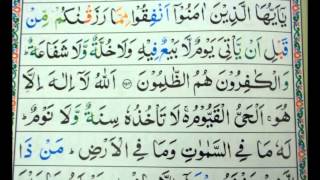 يٰۤاَيُّهَا الَّذِيْنَ اٰمَنُوْۤا اَنْفِقُوْا مِمَّا رَزَقْنٰكُمْ مِّنْ
قَبْلِ اَنْ يَّاْتِيَ يَوْمٌ لَّا بَيْعٌ فِيْهِ وَلَا خُلَّةٌ وَّلَا شَفَاعَةٌ ؕ
وَالْكٰفِرُوْنَ هُمُ الظّٰلِمُوْنَ ﴿۲۵۴﴾ اَللّٰهُ لَاۤ اِلٰهَ اِلَّا
هُوَ ۚ اَلْحَيُّ الْقَيُّوْمُ ۚ لَا تَاْخُذُهٗ سِنَةٌ وَّلَا نَوْمٌ ؕ
لَهٗ مَا فِي السَّمٰوٰتِ وَمَا فِي الْاَرْضِ ؕ مَنْ ذَا